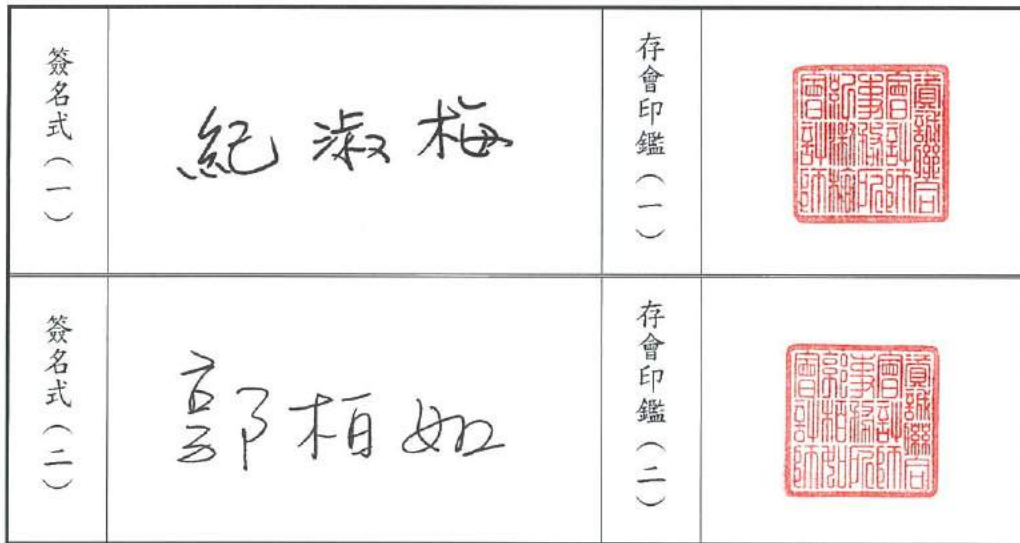 簽名式（一）
紀淑梅
存會印鑑（一）
資誠聯合
會計師
事務所
紀淑梅
會計師
簽名式（二）
郭柏如
存會印鑑（二）
資誠聯合
會計師
事務所
郭柏如
會計師